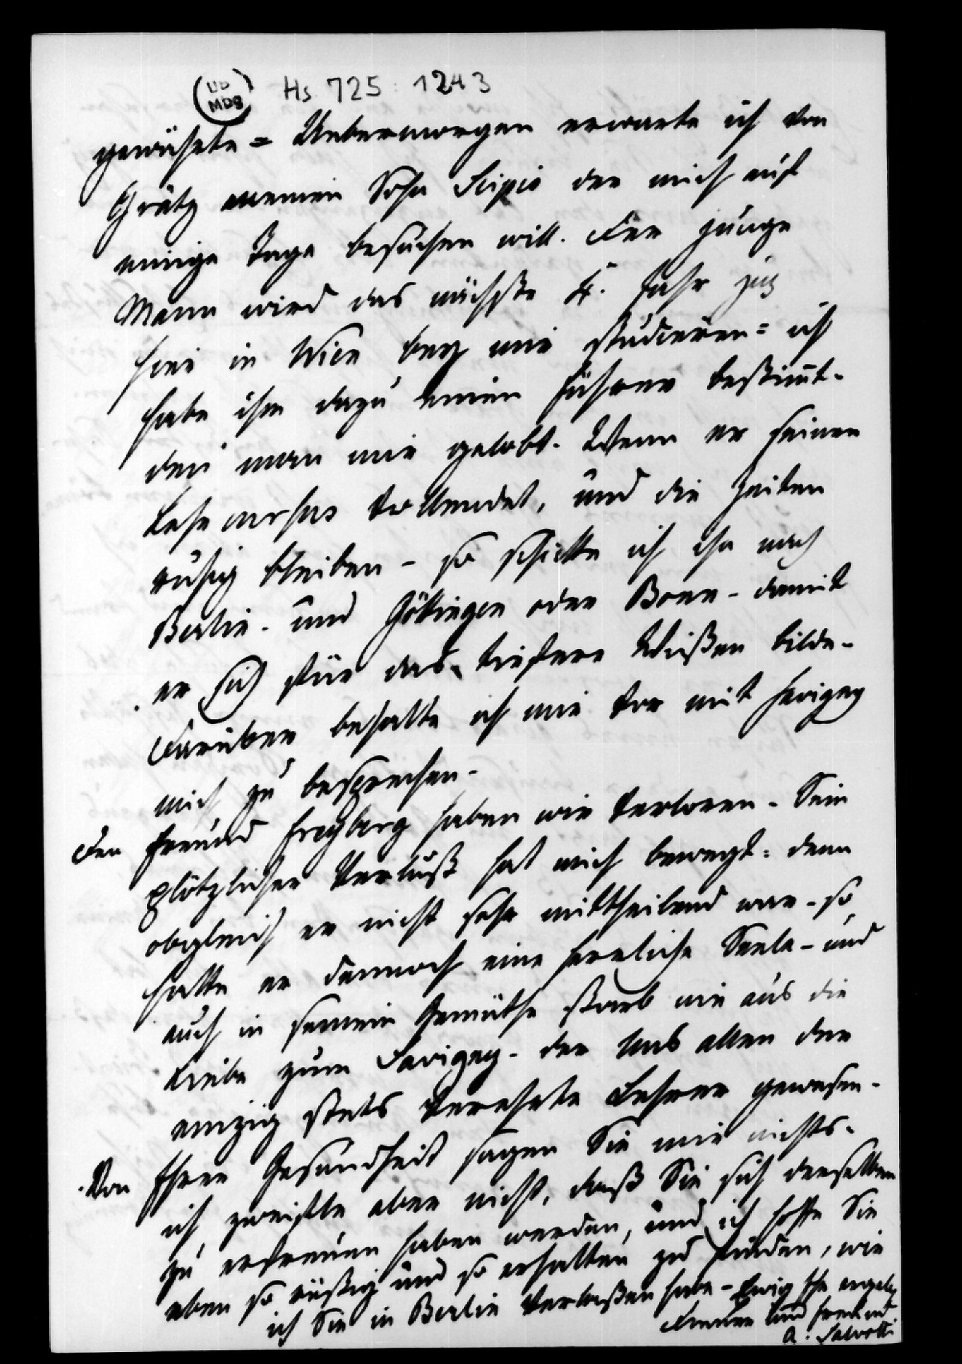 UB
MBG
Hs 725 : 1243
gewüßte = Uebermorgen erwarte ich von
Grätz meinen Sohn Scipio der mich auf
einige Tage besuchen will. Der junge
Mann wird das nächste J. Jahr jus
hier in Wien bey mir studieren = ich
habe ihm dazu einen Führer bestimmt-
den man mir gelobt. Wenn er seinen
Lehrcursus vollendet, und die Zeiten
ruhig bleiben - so schicke ich ihn nach
Berlin - und Göttingen oder Bonn - damit
er sich für das tiefere Wißen bilde -
Darüber behalte ich mir vor mit Savigny
mich zu besprechen -
Den Freund Freyberg haben wir verloren - Sein
plötzlicher Verlust hat mich bewegt: denn
obgleich er nicht sehr mittheilend war - so
hatte er dennoch eine herrliche Seele - und
auch in seinem Gemüthe starb nie aus die
Liebe zum Savigny - der uns allen der
einzig stets verehrte Lehrer gewesen -
Von Ihrer Gesundheit sagen Sie mir nichts -
ich zweifle aber nicht, daß Sie sich derselben
zu erfreuen haben werden, und ich hoffe Sie
eben so rüstig und so erhalten zu finden, wie
ich Sie in Berlin verlaßen habe - Ewig Ihr
und Freund
A. Salvotti